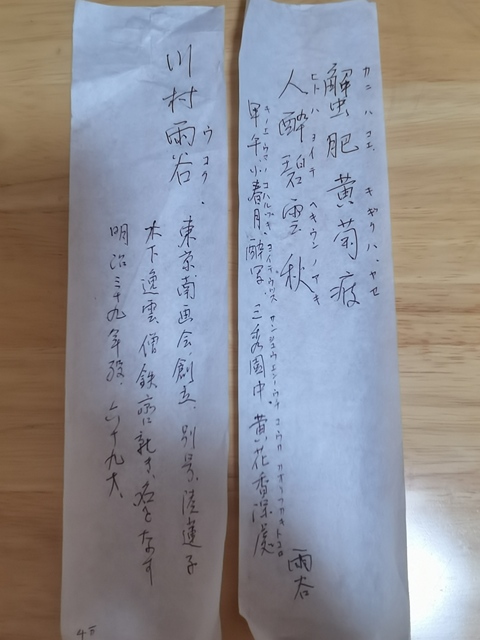 カニ ハ コエ キギクハ ヤセ
蟹肥黄菊疲
ヒト ハ ヨイテ ヘキウンノアキ
人酔碧雲秋
キノエウマ コハルヅキ ヨイテウツス サンシュウエンノウチ コウカ カオリフカキトコロ
甲午小春月、酔写 三秀園中、黄花香深處
雨谷
ウコク
川村雨谷
東京南画会、創立、別号、陸蓮子
木下逸雲、僧鉄翁に就き、名をなす
明治三十九年歿、六十九才